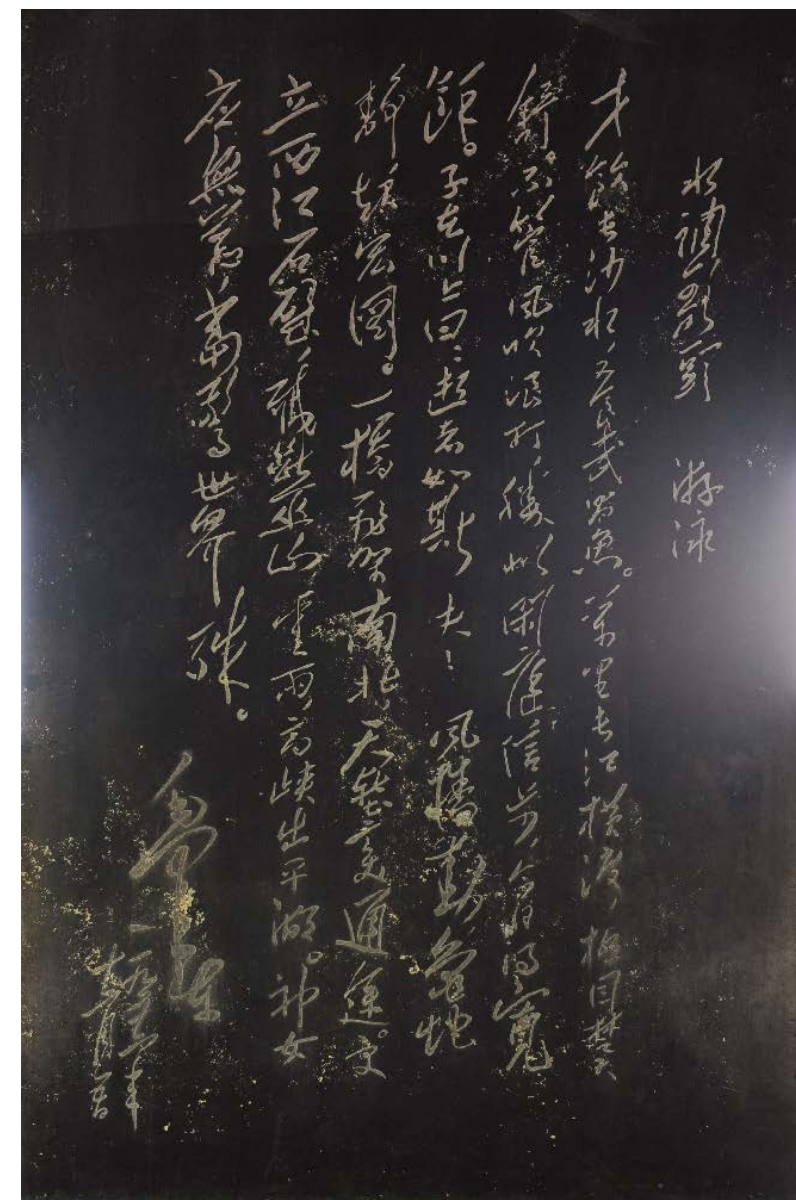 水調歌頭 游泳
才飲長沙水,又食武昌魚。萬里長江橫渡,極目楚天
舒。不管風吹浪打,勝似閑庭信步,今日得寬
餘。子在川上曰:逝者如斯夫!風檣動,龜蛇
靜,起宏圖。一橋飛架南北,天塹變通途。更
立西江石壁,截斷巫山雲雨,高峽出平湖。神女
应無恙,當驚世界殊。
毛澤東
一九五六年